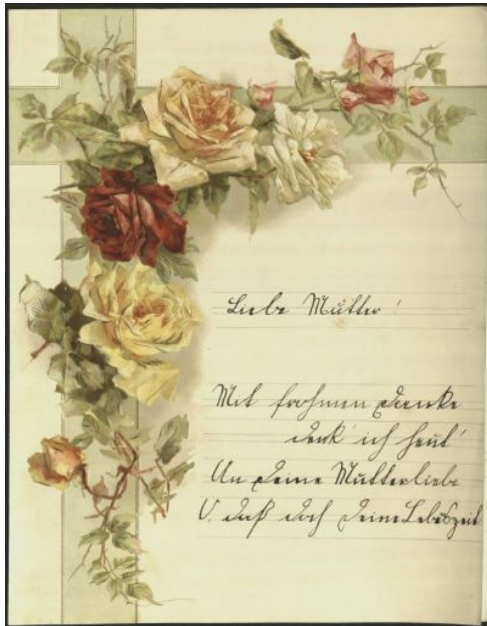 Liebe Mutter!
Mit frohem Danke
denk' ich heut'
An Deine Mutterliebe
O, daß doch Deine Lebeszeit